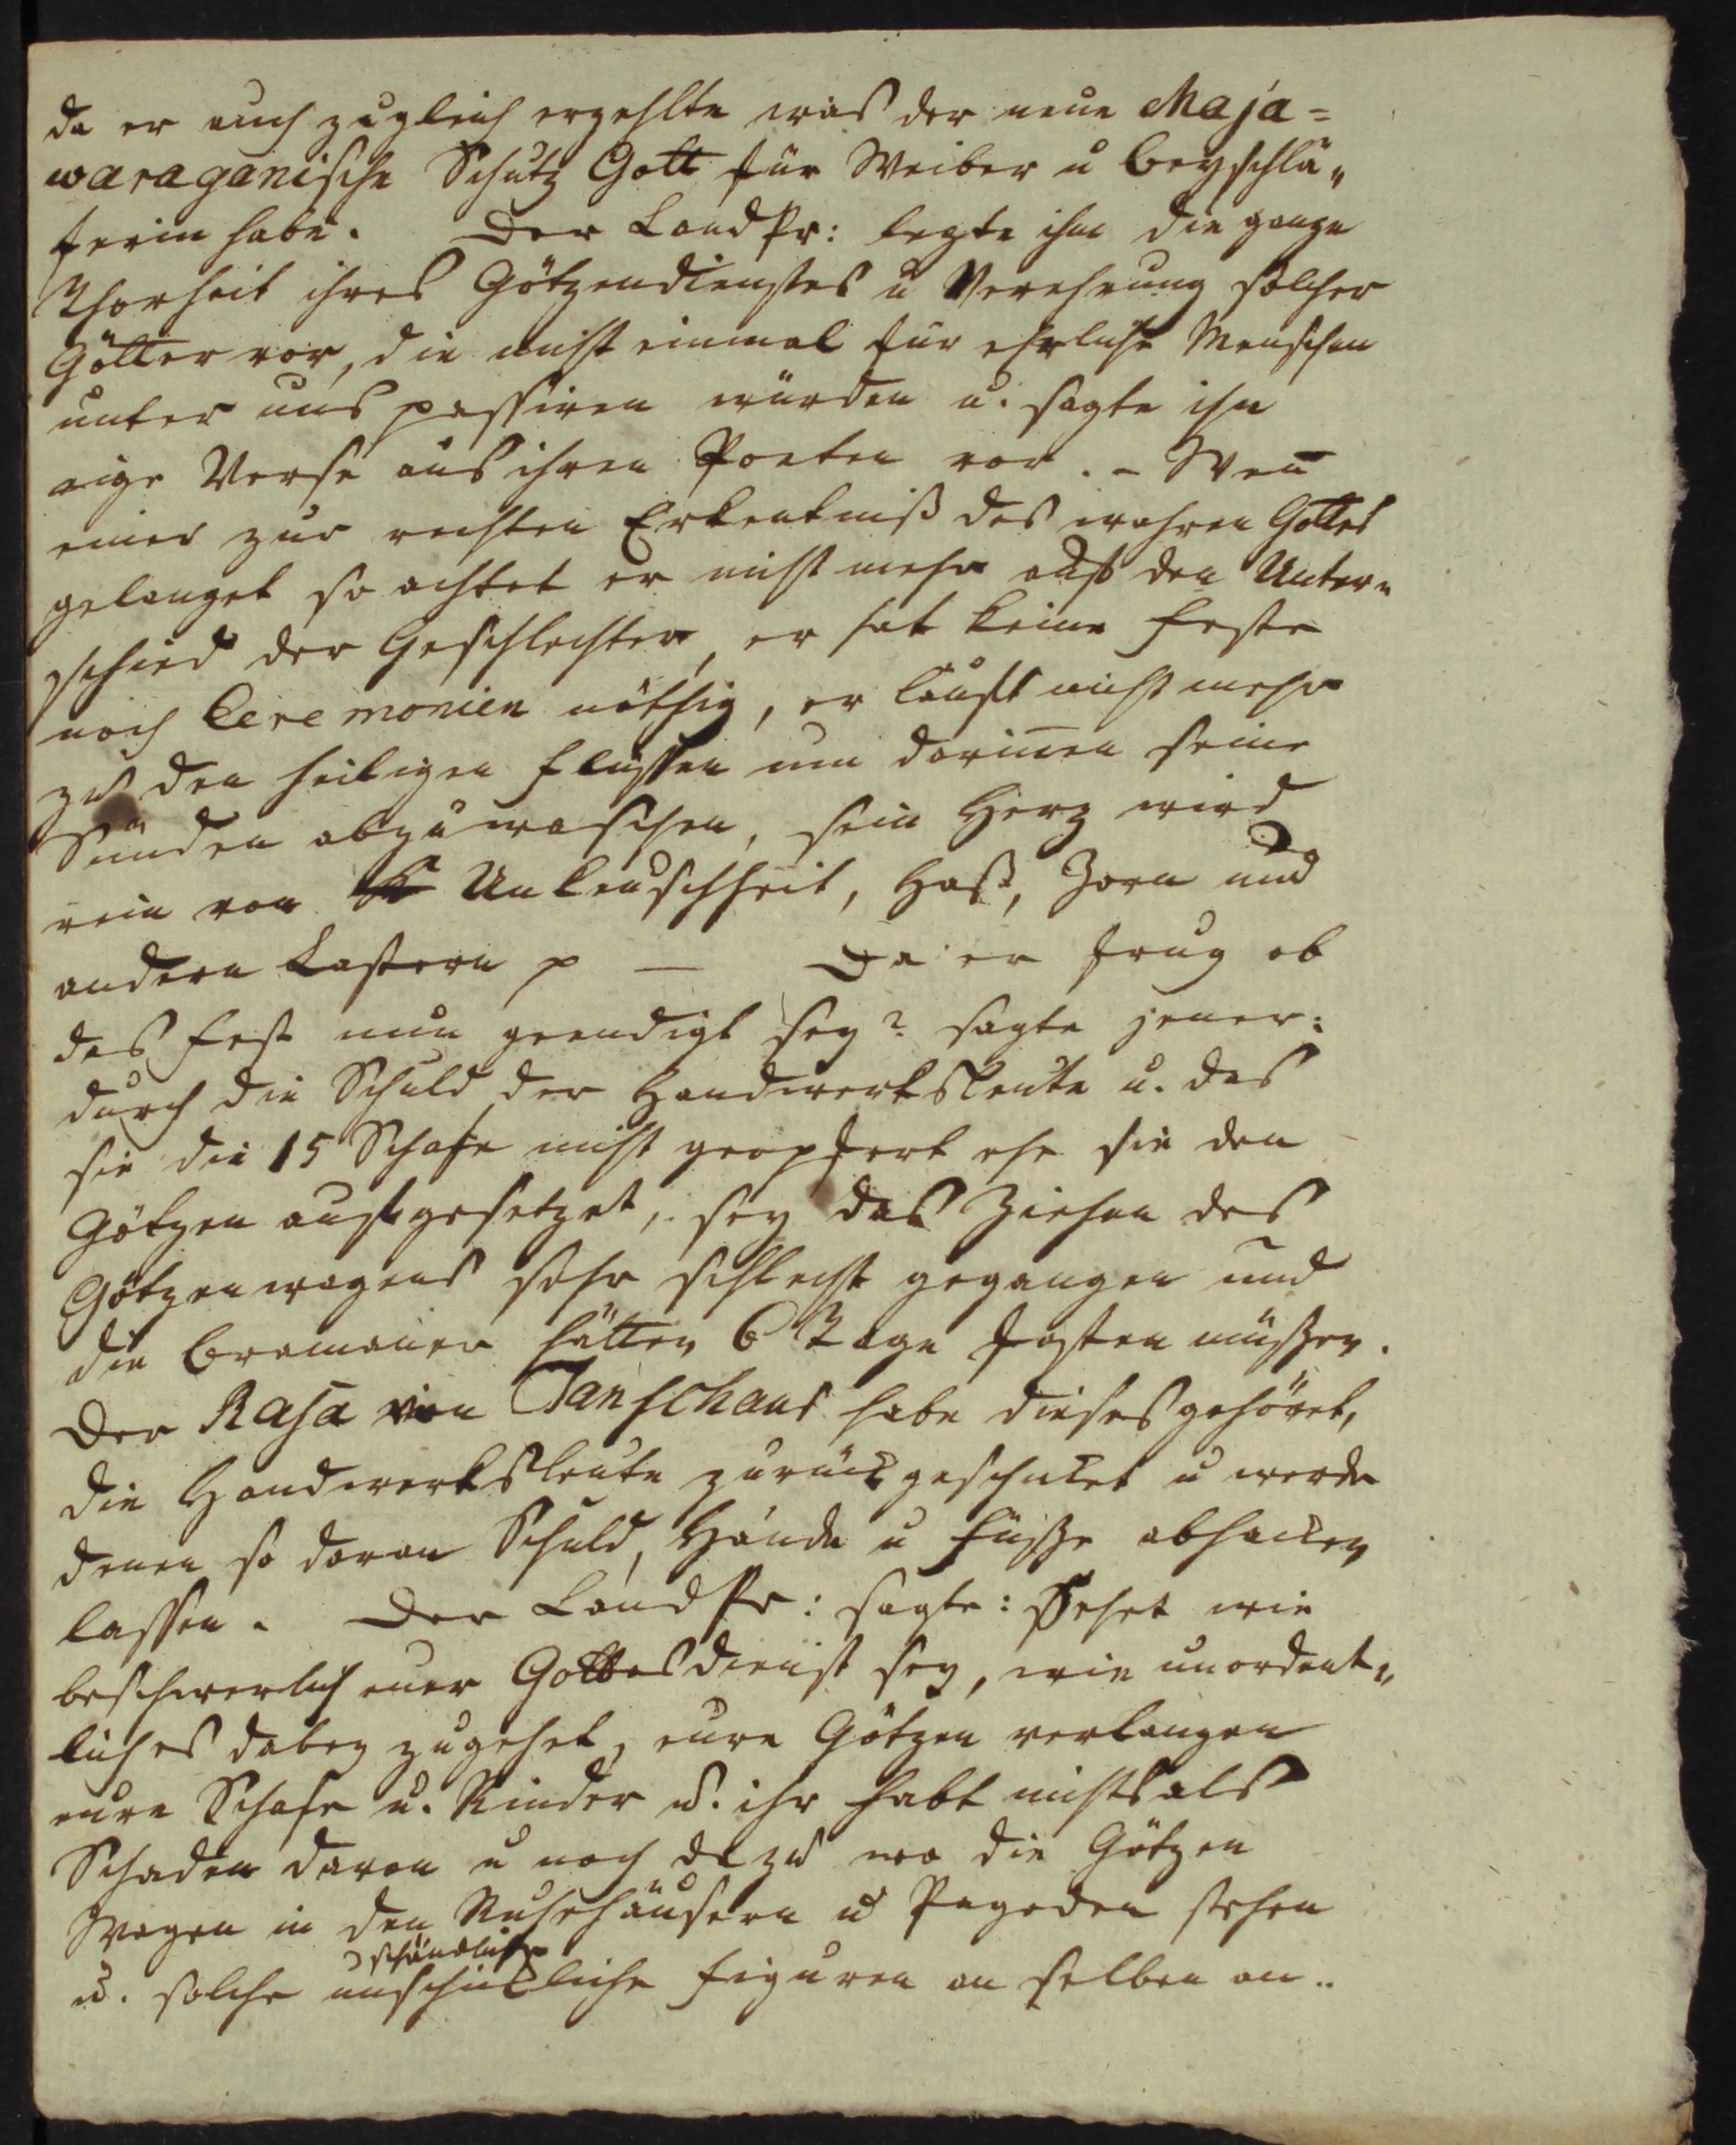 da er auch zugleich erzehlte was der neue Maja=
waraganische Schutz Gott für Weiber u Beyschlä„
ferin habe. Der LandPr: legte ihm die ganze
Thorheit ihres Götzendienstes u Verehrung solcher
Götter vor, die nicht einmal für ehrliche Menschen
unter uns passiren würden u. sagte ihn
eige Verse aus ihren Poeten vor. – Wen̅
einer zur rechten Erkentniß des wahren Gottes
gelanget so achtet er nicht mehr auf den Unter„
schied der Geschlechter, er hat keine Feste
noch Ceremonien nöthig, er lauft nicht mehr
zu den heiligen Flüssen um darin̅en seine
Sünden abzuwaschen, sein Herz wird
rein von Unkeuschheit, Haß, Zorn und
andern Lastern p — Da er frug ob
das Fest nun geendigt sey? sagte jener:
durch die Schuld der Handwerksleute u. das
sie die 15 Schafe nicht geopfert ehe sie den
Götzen aufgesetzet, sey das Ziehen des
Götzenwagens sehr schlecht gegangen und
die Bramaner hätten 6 Tage fasten müßen.
Der Raja von Tanschaur habe dieses gehöret,
die Handwerksleute zurück geschicket u werde
denen so daran Schuld, Hände u Füsse abhacken
lassen. Der LandPr: sagte: Sehet wie
beschwerlich euer Gottesdienst sey, wie unordent„
lich es dabey zugehet, eure Götzen verlangen
eure Schafe u. Rinder u. ihr habt nichts als
Schaden davon u noch dazu wo die Götzen
Wagen in den Ruhehäusern u Pagoden stehen
u schändliche
u. solche unschickliche Figuren an selben an„